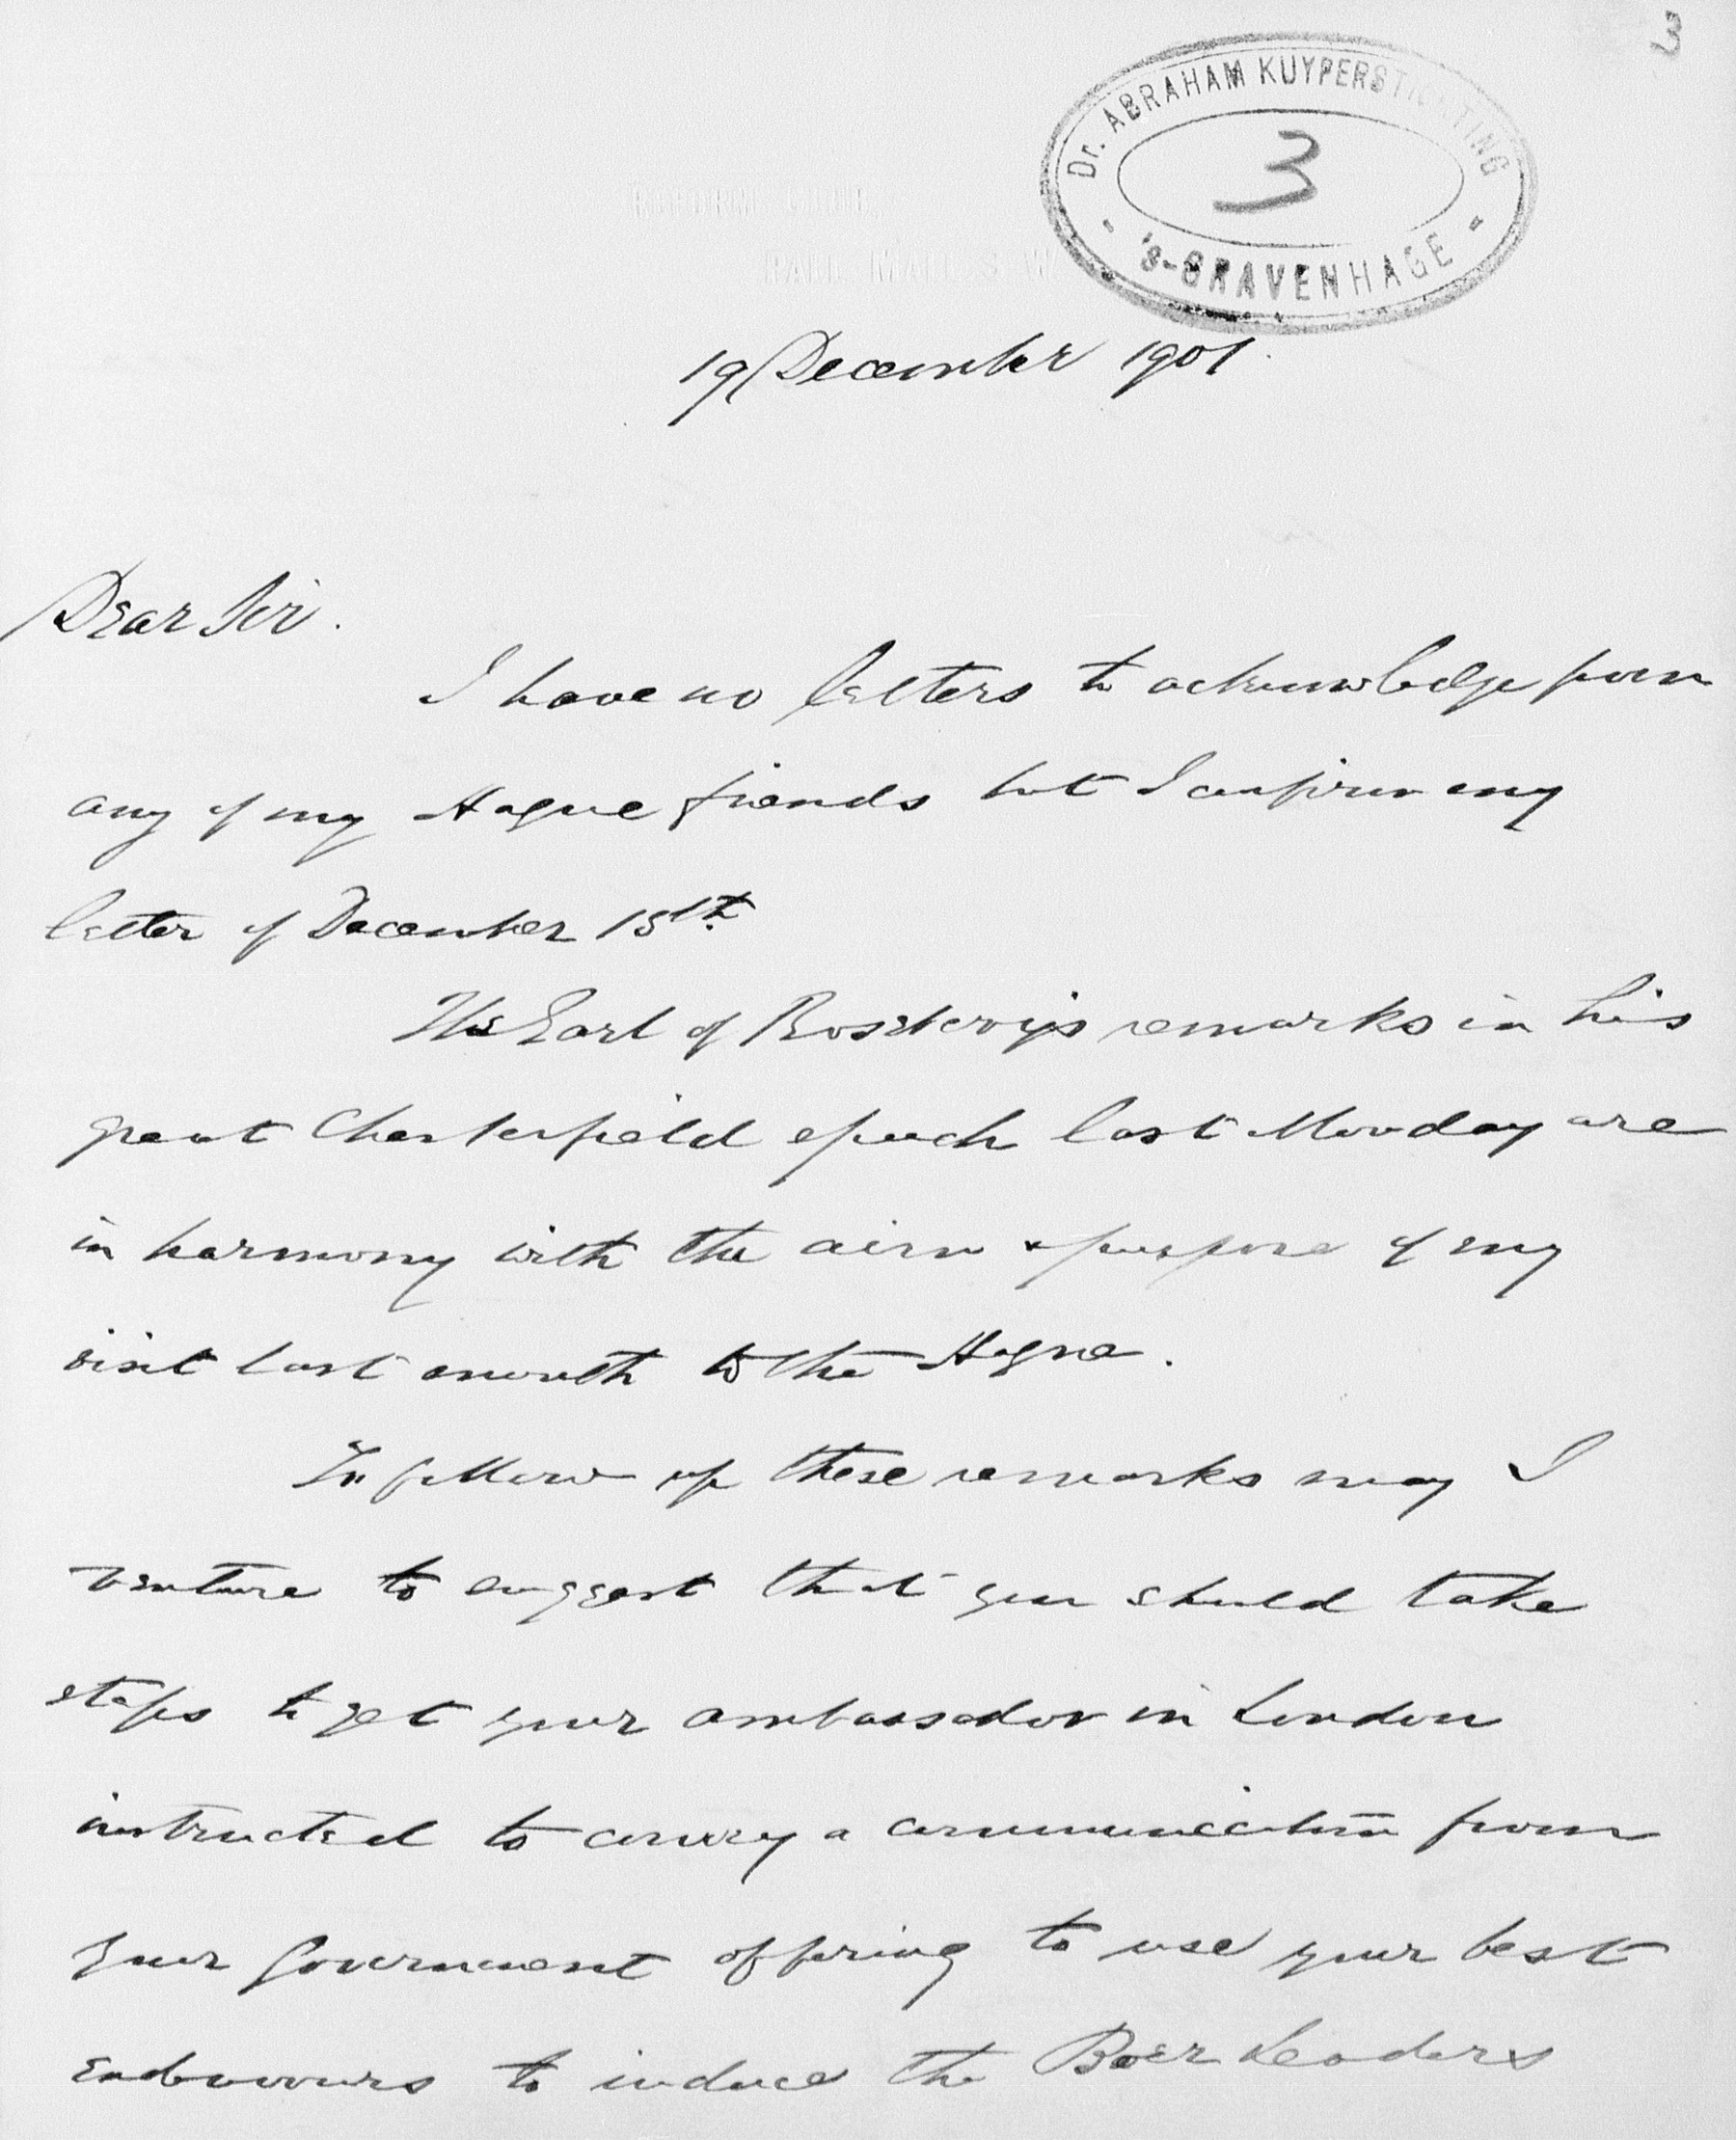 3
Dr. ABRAHAM KUYPERSTICHTING
3
'S-GRAVENHAGE
REFORM CLUB,
PALL MALL. S.W.
19 December 1901.
Dear Sir.
I have no letters to acknowledge from
any of my Hague friends but I confirm my
letter of December 15th.
The Earl of Rosebery's remarks in his
great Chesterfield speech last Monday are
in harmony with the aim & purpose of my
visit last month to the Hague.
To follow up these remarks may I
venture to suggest that you should take
steps to get your ambassador in London
instructed to convey a communication from
your Government offering to use your best
endeavours to induce the Boer Leaders